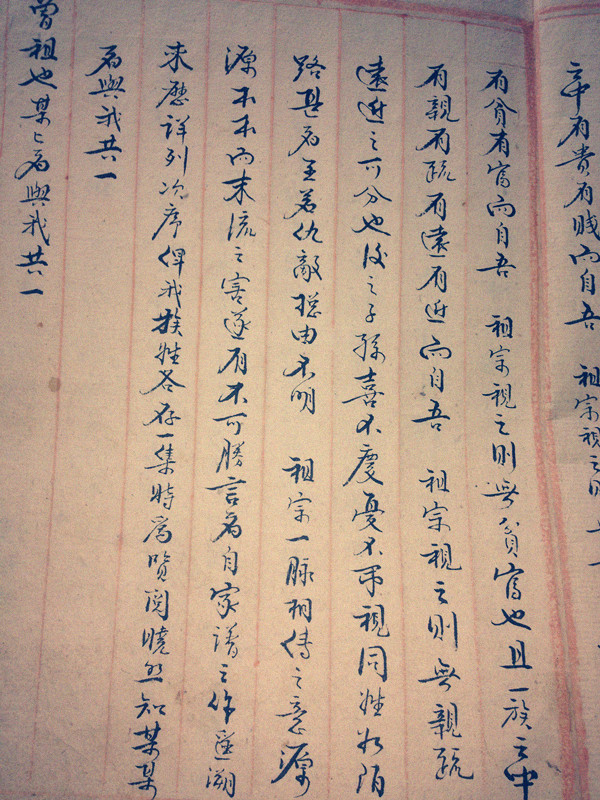 之中有貴有賤而自吾 祖宗視之則
有貧有富而自吾 祖宗視之則無貧富也且一族之中
有親有疏有遠有近而自吾 祖宗視之則無親疏
遠近之可分也後之子孫喜不慶憂不弔視同姓於陌
路甚者至若仇敵總由不明 祖宗一脉相傳之意源
源本本而末流之害遂有不可勝言者自家譜之作追溯
來歷詳列次序俾我族姓各存一集時爲覽閱曉然知某某
爲與我共一
曾祖也某某爲與我共一